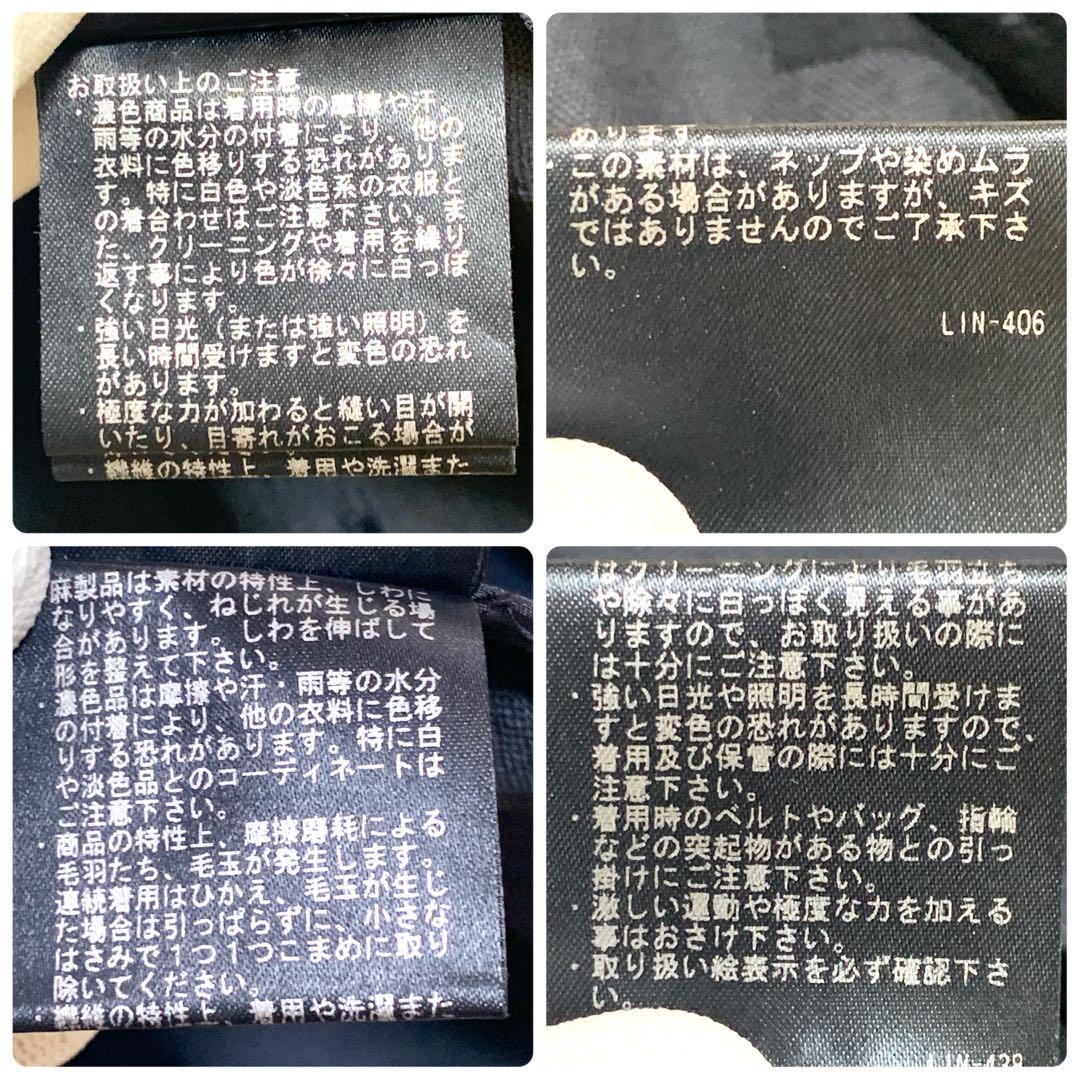 お取扱い上のご注意
・濃色商品は着用時の摩擦や汗、
雨等の水分の付着により、他の
衣料に色移りする恐れがありま
す。特に白色や淡色系の衣服と
の着合わせはご注意下さい。ま
た、クリーニングや着用を繰り
返す事により色が徐々に白っぽ
くなります。
・強い日光(または強い照明)を
長い時間受けますと変色の恐れ
があります。
・極度な力が加わると縫い目が開
いたり、目寄れがおこる場合が
・繊維の特性上、着用や洗濯また
あります
この素材は、ネップや染めムラ
がある場合がありますが、キズ
ではありませんのでご了承下さ
い。
LIN-406
麻製品は素材の特性上、しわに
なりやすく、ねじれが生じる場
合があります。しわを伸ばして
形を整えて下さい。
濃色品は摩擦や汗・雨等の水分
の付着により、他の衣料に色移
りする恐れがあります。特に白
や淡色品とのコーディネートは
ご注意下さい。
・商品の特性上、摩擦磨耗による
毛羽たち、毛玉が発生します。
連続着用はひかえ、毛玉が生じ
た場合は引っぱらずに、小さな
はさみで1つ1つこまめに取り
除いてください。
・繊維の特性上、着用や洗濯また
はクリーニングにより毛羽立ち
や徐々に白っぽく見える事があ
りますので、お取り扱いの際に
は十分にご注意下さい。
・強い日光や照明を長時間受けま
すと変色の恐れがありますので、
着用及び保管の際には十分にご
注意下さい。
・着用時のベルトやバッグ、指輪
などの突起物がある物との引っ
掛けにご注意下さい。
・激しい運動や極度な力を加える
事はおさけ下さい。
・取り扱い絵表示を必ず確認下さ
い。
LIN-439